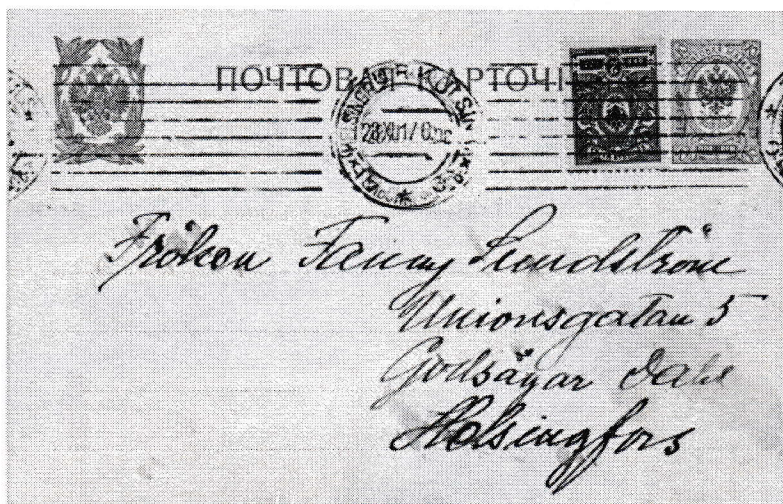 ПОЧТОВАЯ КАРТОЧК
Fröken Fanny Sundström
Unionsgatan 5
Godsägar Dahl
Helsingfors